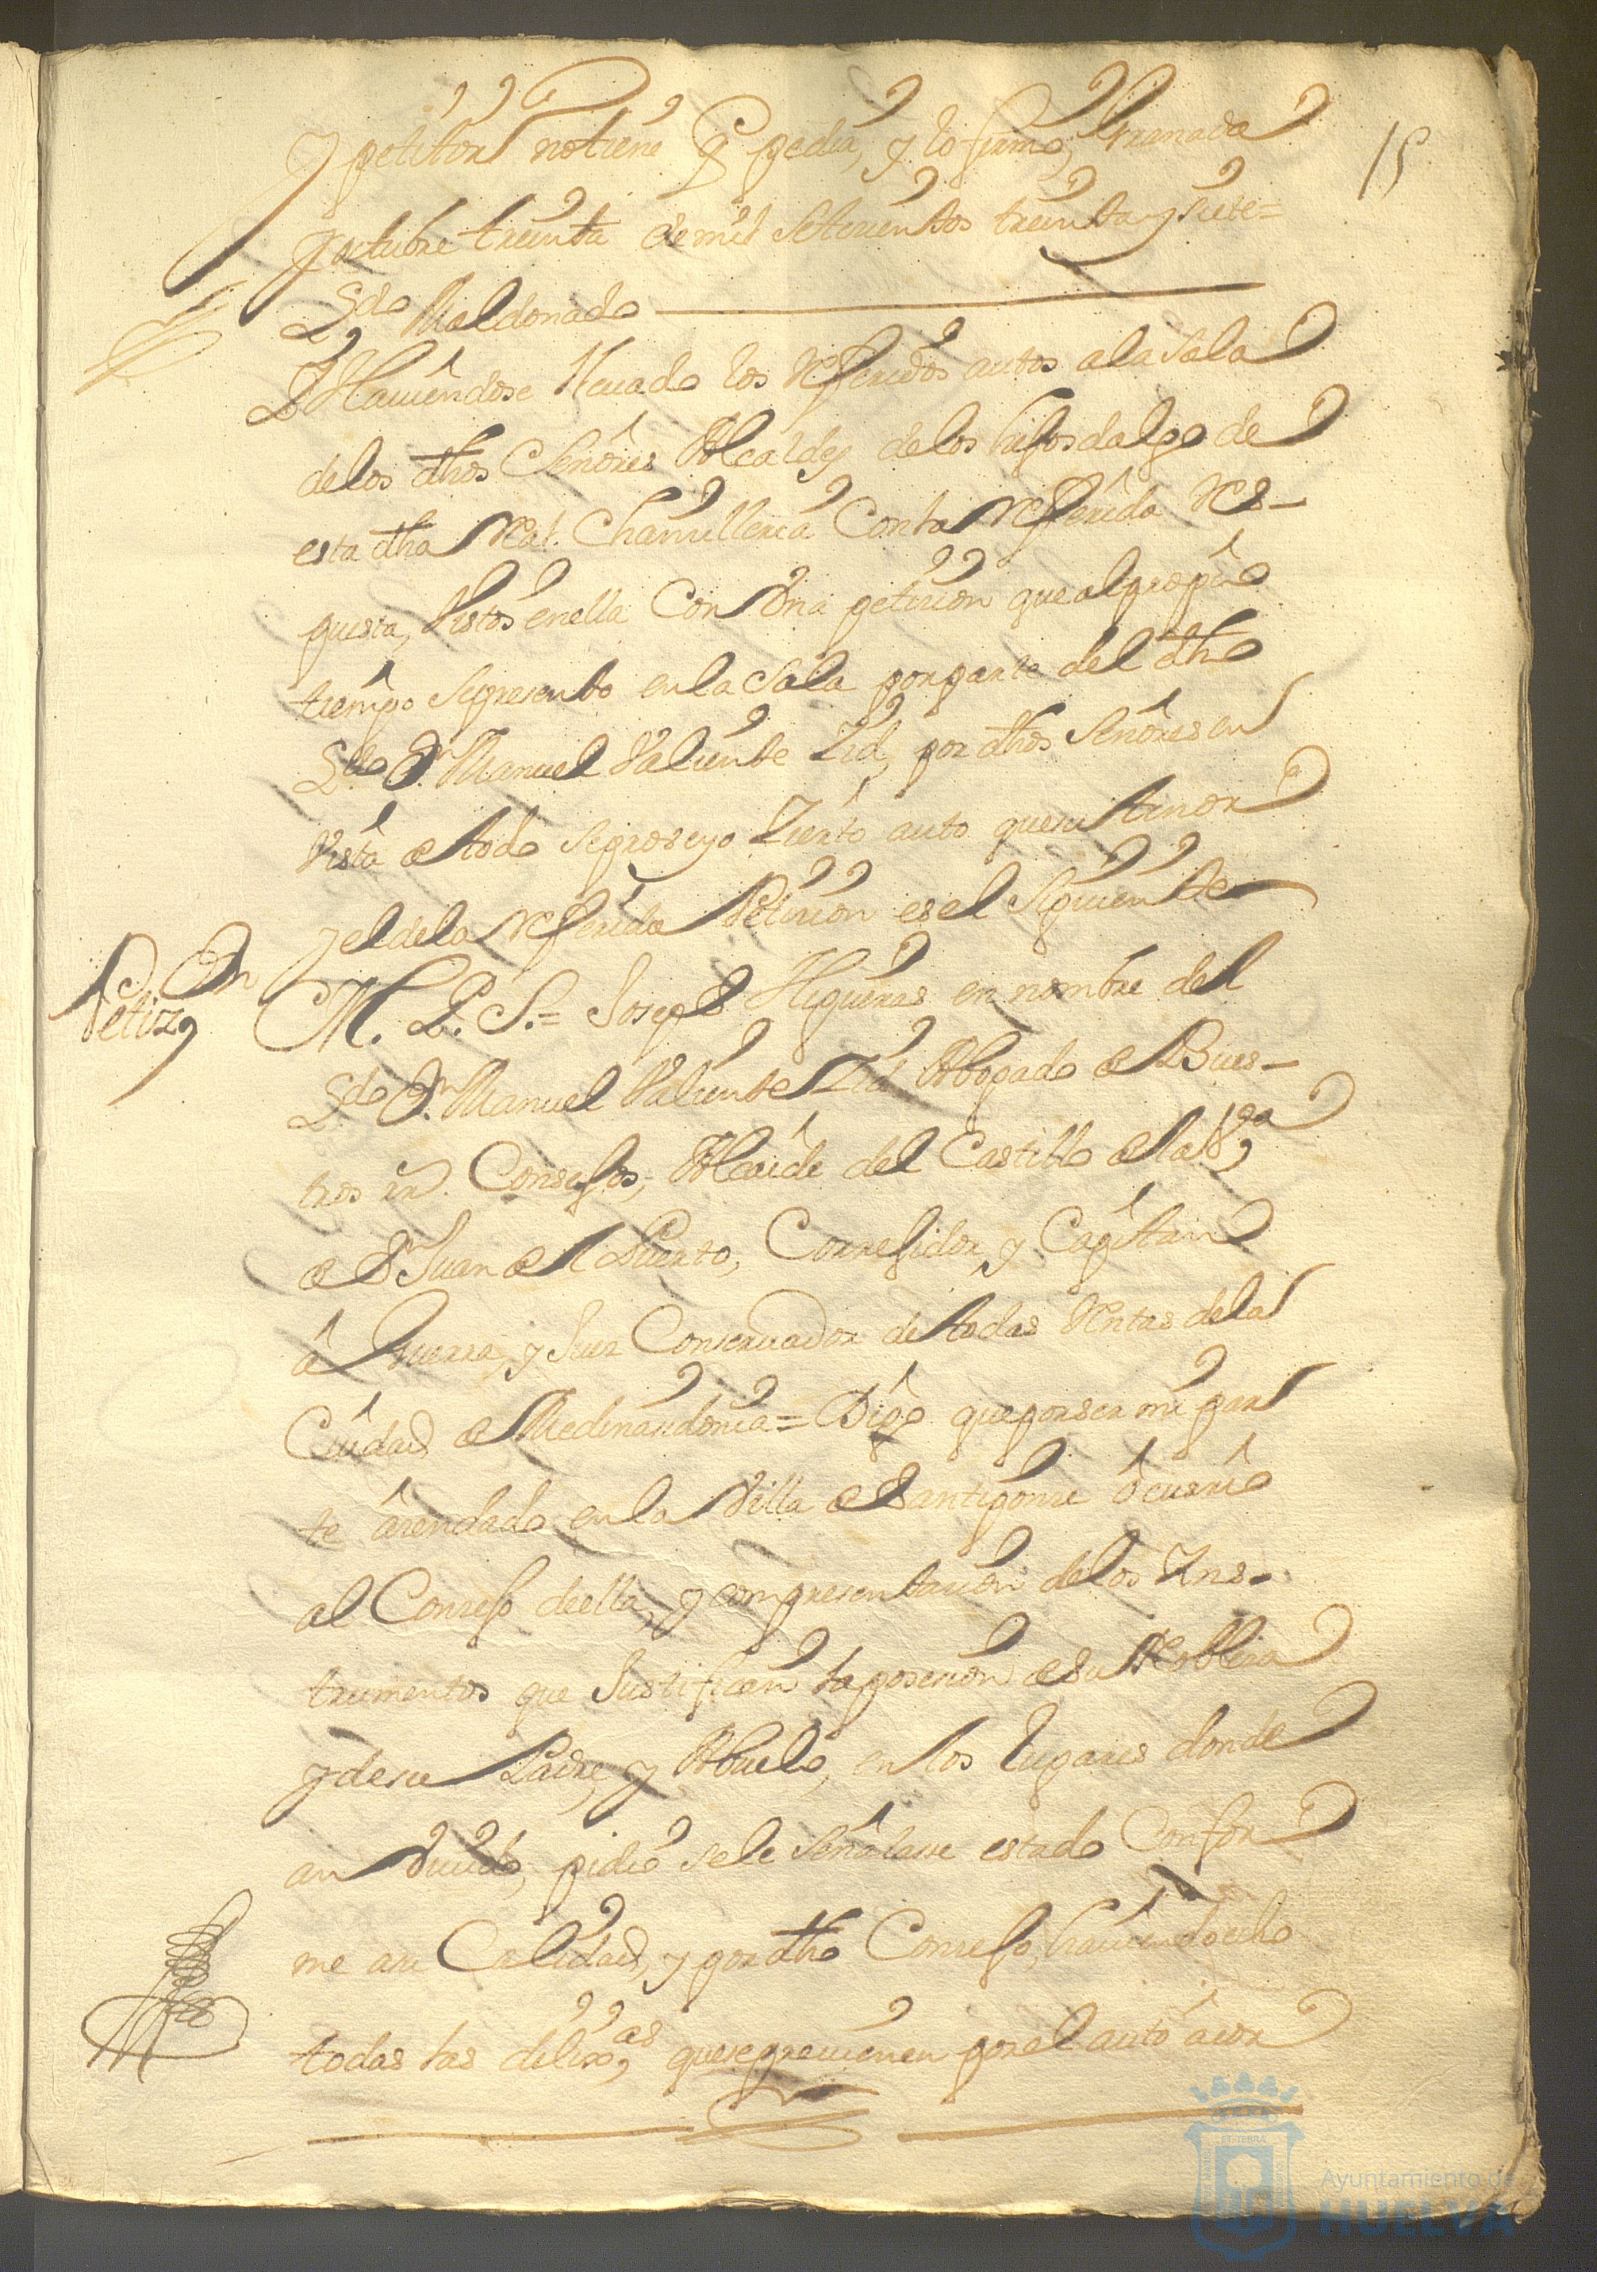 15
y petitorl notiene q pedia, y lo firmo, Granada
y octubre treinta de mil setecientos treinta y siete=
Lsdo Maldonado
Y Haviendose llevado los referidos autos a la sala
delos dhos Señores Alcaldes delos hijosdalgo de
esta dha Real Chancilleria Con la referida Res-
puesta, Vistos en ella Con Una peticion que al propio
tiempo se presento en la Sala por parte del dho
Lsdo Dn Manuel Valiente Zid, por dhos Señores en
Vista de todo se proveyo Zierto auto que su tenor
y el dela referida Peticion es el siguiente
Petizon
M. P. S.= Joseph Higueras en nombre del
Lsdo Dn Manuel Valiente Zid Abogado de Vues-
tros Rs Consejos, Alcaide del Castillo de la Va
de Sn Juan del Puerto, Correjidor, y Capitan
â Guerra, y Juez Conservador de todas Rentas dela
Ciudad de Medinasidonia= Digo que por ser mi par
te arendado en la Villa de Santiponze ôcurrio
al Consejo de ella, y con presentacion delos Ins-
trumentos que Justifican la posecion de su Nobleza
y de su Padre, y Abuelo, en los lugares donde
an Vivido, pidio se le señalase estado Confor
me a su Calidad, y por dho Consejo, haviendo echo
todas las dilixas que se previenen por el auto acor
Ayuntamiento de
HUELVA